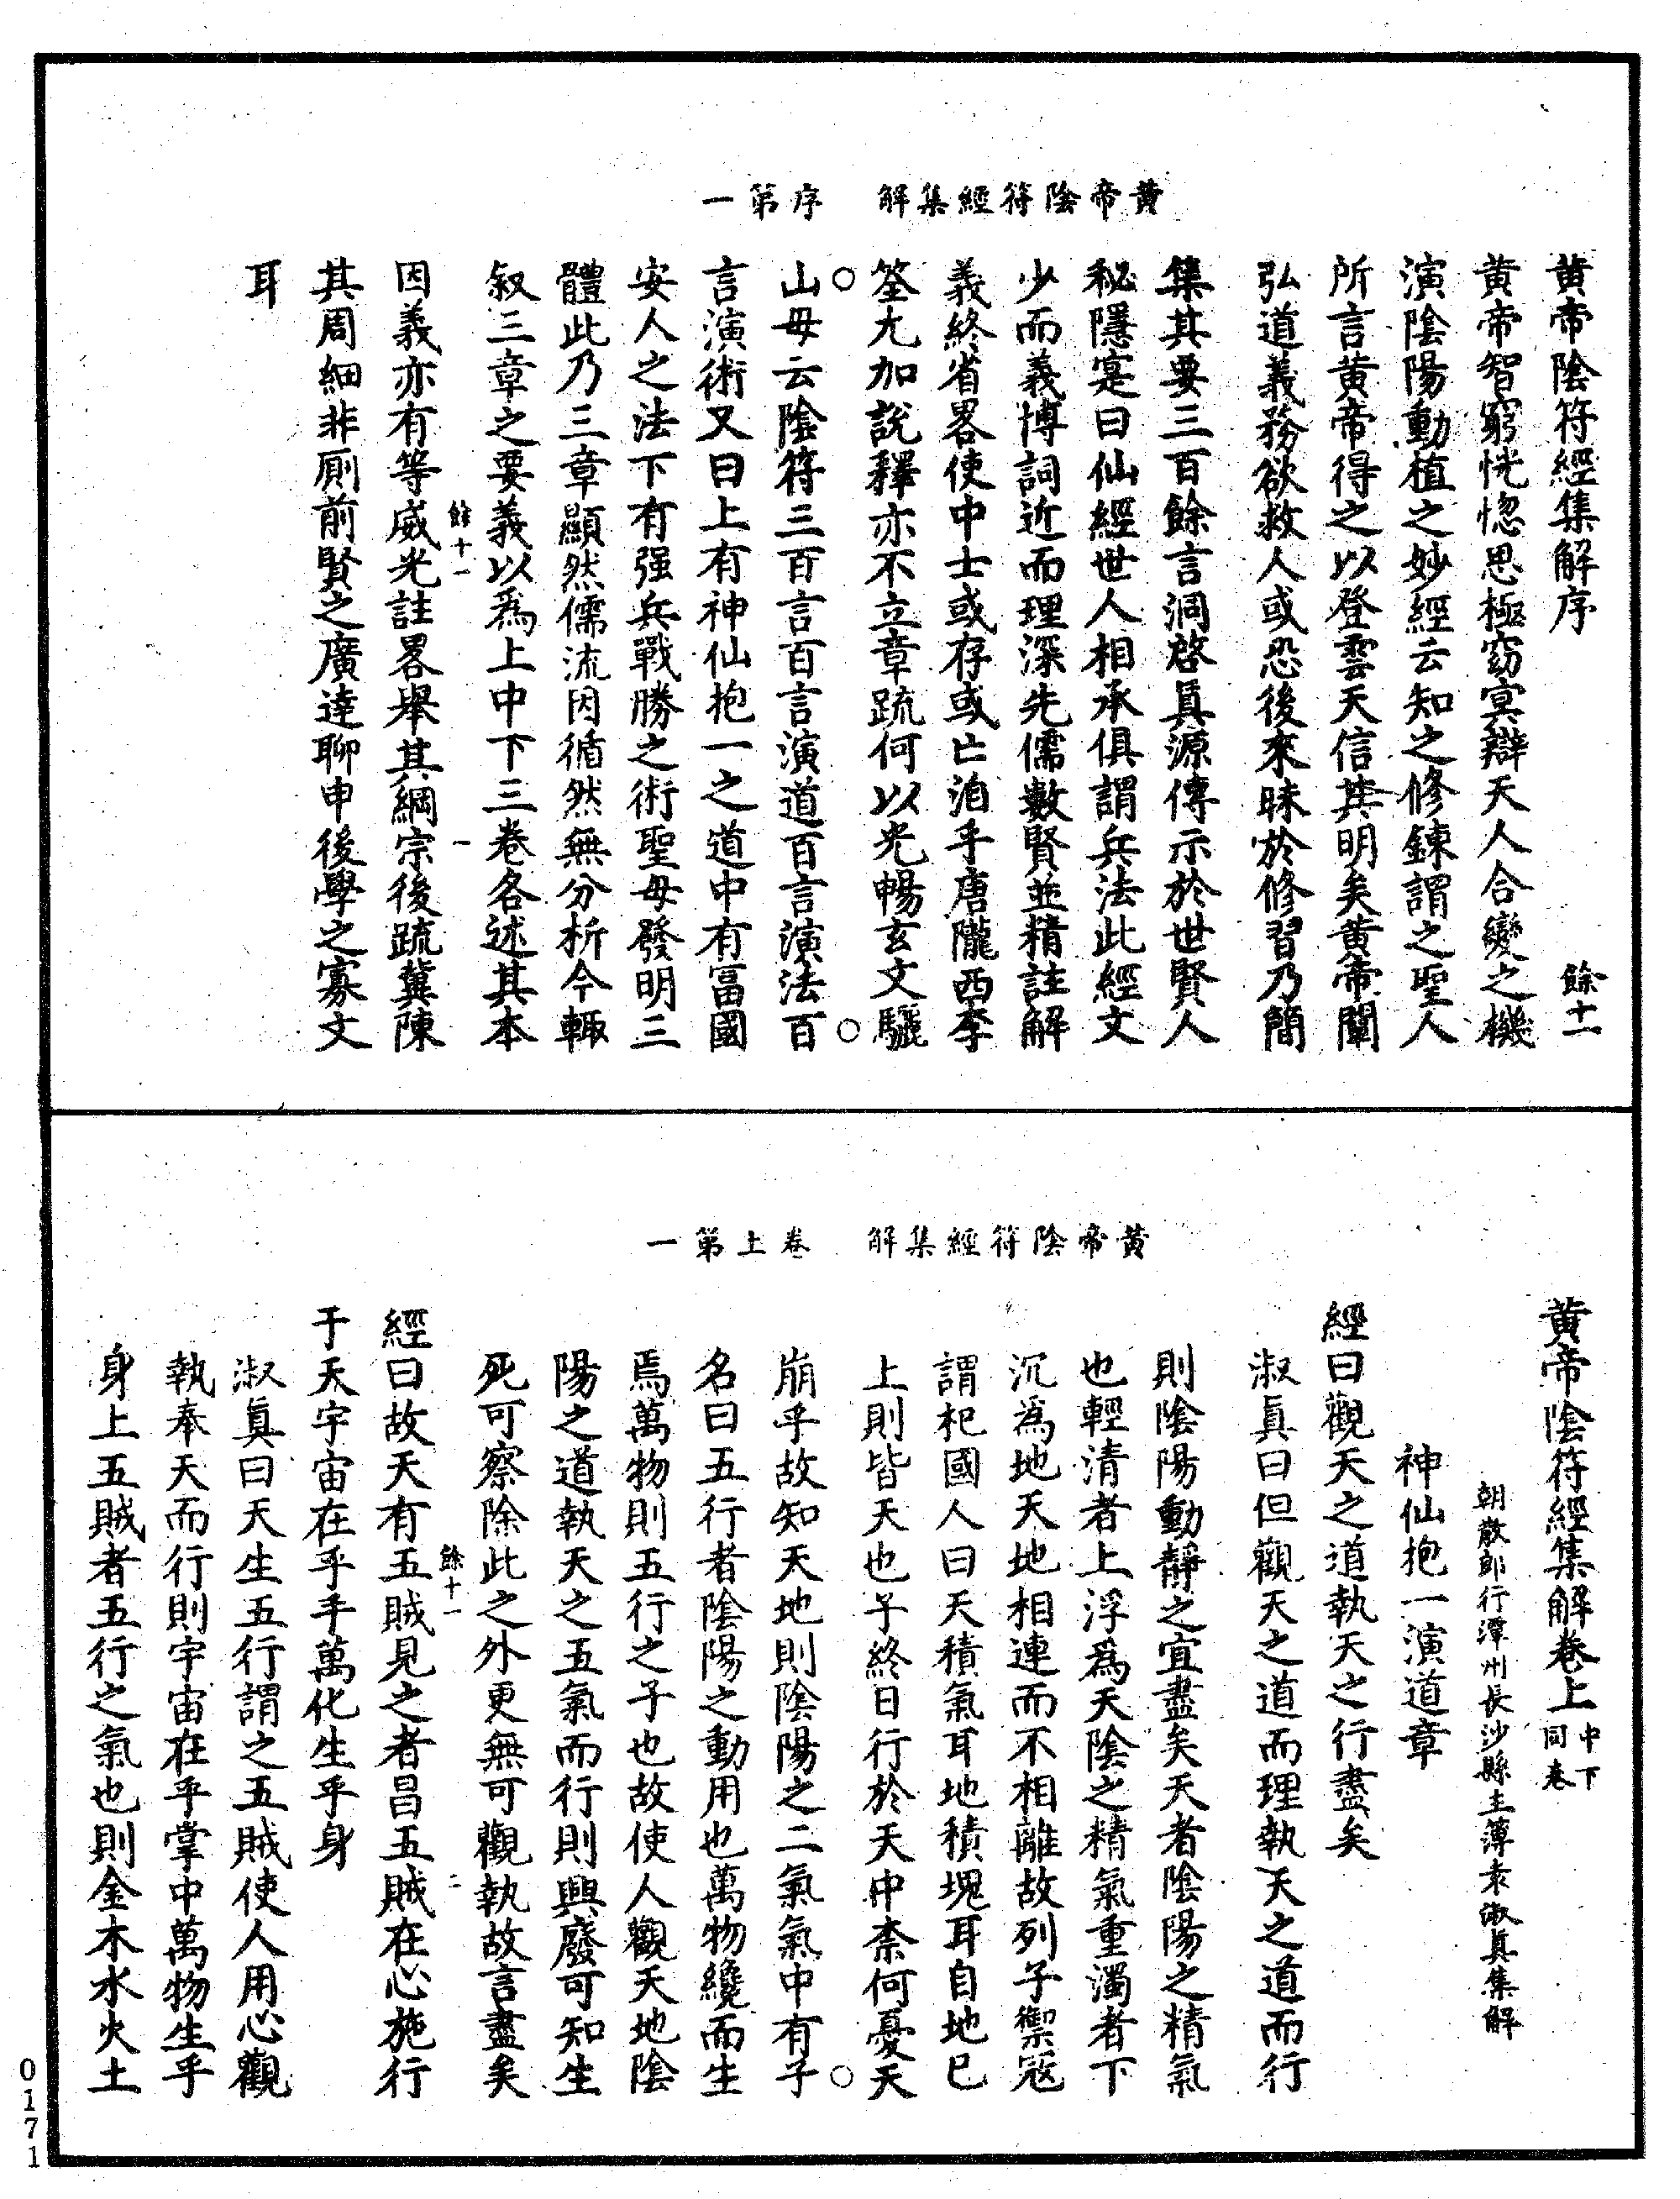 黄帝陰符經集解　序第一
黄帝陰符經集解序　餘十一
黄帝智窮恍惚思極窈冥辯天人合變之機
演陰陽動植之妙經云知之修鍊謂之聖人
所言黄帝得之以登雲天信其明矣黄帝闡
弘道義務欲救人或恐後來昧於修習乃簡
集其要三百餘言洞啓真源傳示於世賢人
秘隱寔曰仙經世人相承俱謂兵法此經文
少而義博詞近而理深先儒數賢並精註解
義終省畧使中士或存或亡洎乎唐隴西李
筌尤加說釋亦不立章疏何以光暢玄文驪
山母云陰符三百言百言演道百言演法百
言演術又曰上有神仙抱一之道中有富國
安人之法下有强兵戰勝之術聖母發明三
體此乃三章顯然儒流因循然無分析今輙
叙三章之要義以爲上中下三卷各述其本
餘十一　一
因義亦有等威光註畧舉其綱宗後疏冀陳
其周細非厠前賢之廣達聊申後學之寡文
耳
黄帝陰符經集解　卷上第一
黄帝陰符經集解卷上中下同卷
朝散郎行潭州長沙縣主簿袁淑真集解
神仙抱一演道章
經曰觀天之道執天之行盡矣
淑真曰但觀天之道而理執天之道而行
則陰陽動靜之宜盡矣天者陰陽之精氣
也輕清者上浮爲天陰之精氣重濁者下
沉爲地天地相連而不相離故列子禦寇
謂杞國人曰天積氣耳地積塊耳自地已
上則皆天也子終日行於天中柰何憂天
崩乎故知天地則陰陽之二氣氣中有子
名曰五行者陰陽之動用也萬物纔而生
焉萬物則五行之子也故使人觀天地陰
陽之道執天之五氣而行則興廢可知生
死可察除此之外更無可觀執故言盡矣
餘十一　二
經曰故天有五賊見之者昌五賊在心施行
于天宇宙在乎手萬化生乎身
淑真曰天生五行謂之五賊使人用心觀
執奉天而行則宇宙在乎掌中萬物生乎
身上五賊者五行之氣也則金木水火土
0171